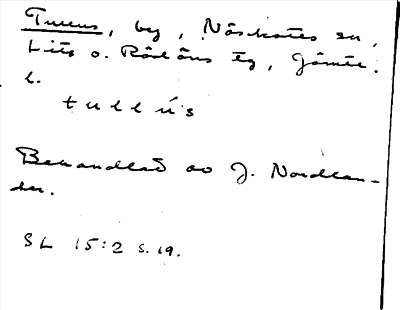 Tullus, by, Näskotts sn,
Lits o. Rödöns tg, Jämtl.
l.
tullús
Behandlad av J. Nordlan-
der.
SL 15:2 s. 19.